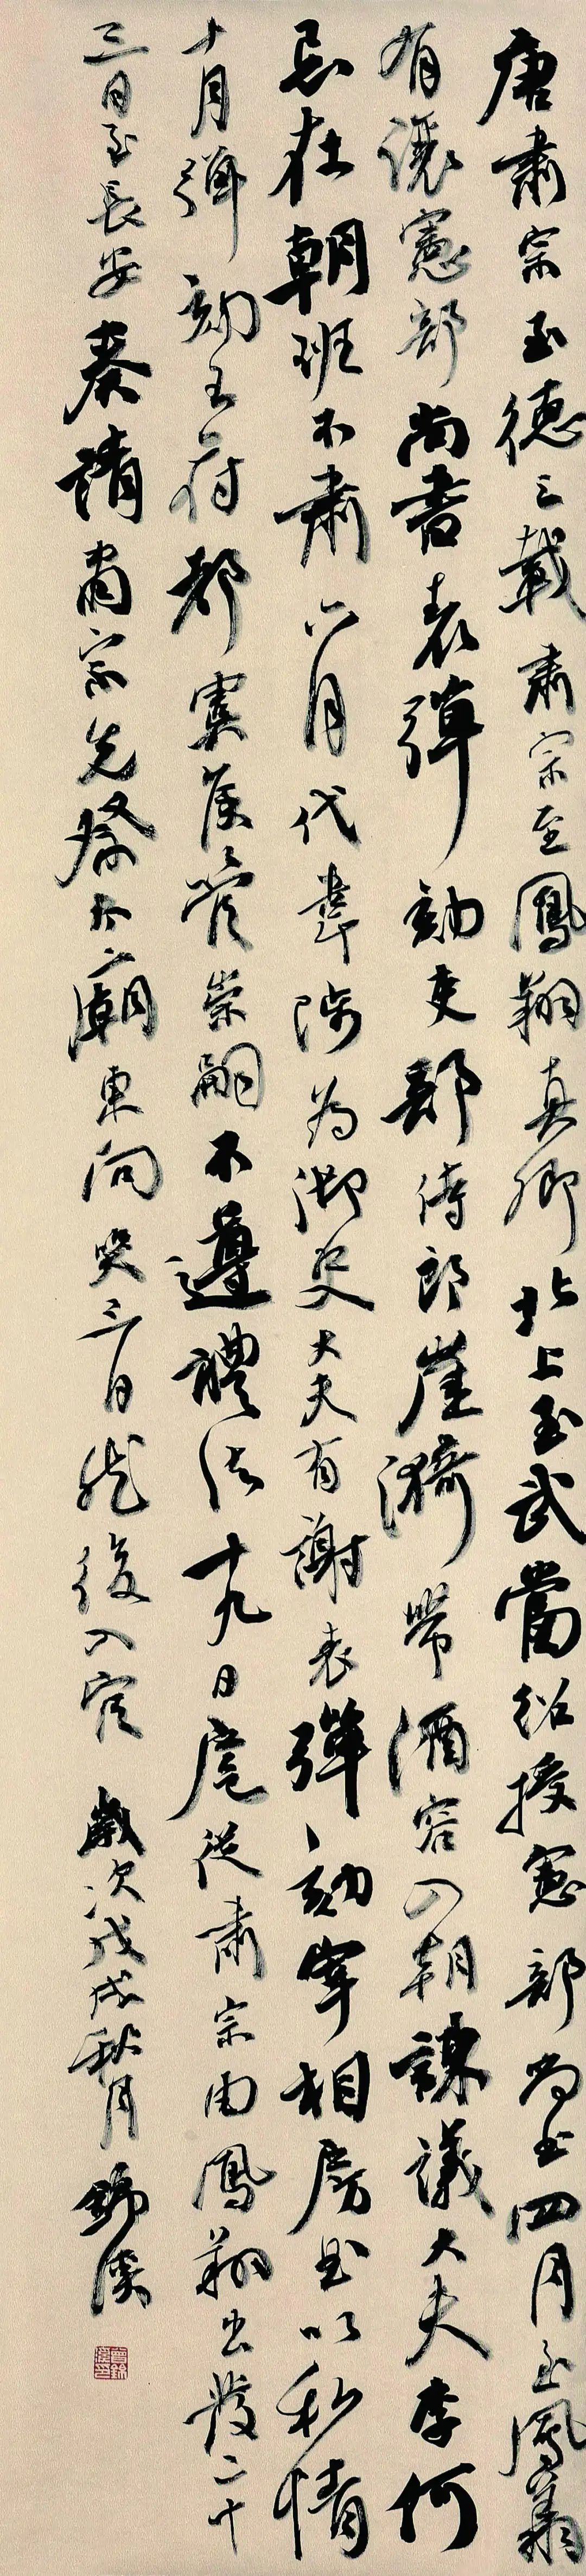 唐肅宗至德二載肅宗至鳳翔真卿北上至武當詔授憲部尚書四月至鳳翔
有讓憲部尚書表彈劾吏部侍郎崔漪帶酒容入朝諫議大夫李何
忌在朝班不肅六月代韋陟為御史大夫有謝表彈劾宰相房琯以私情
十月彈劾王府都虞侯管崇嗣不遵禮法十九日扈從肅宗由鳳翔出發二十
三日至長安奏請肅宗先祭太廟東向哭三日然後入宮 歲次戊戌秋月 錦溪